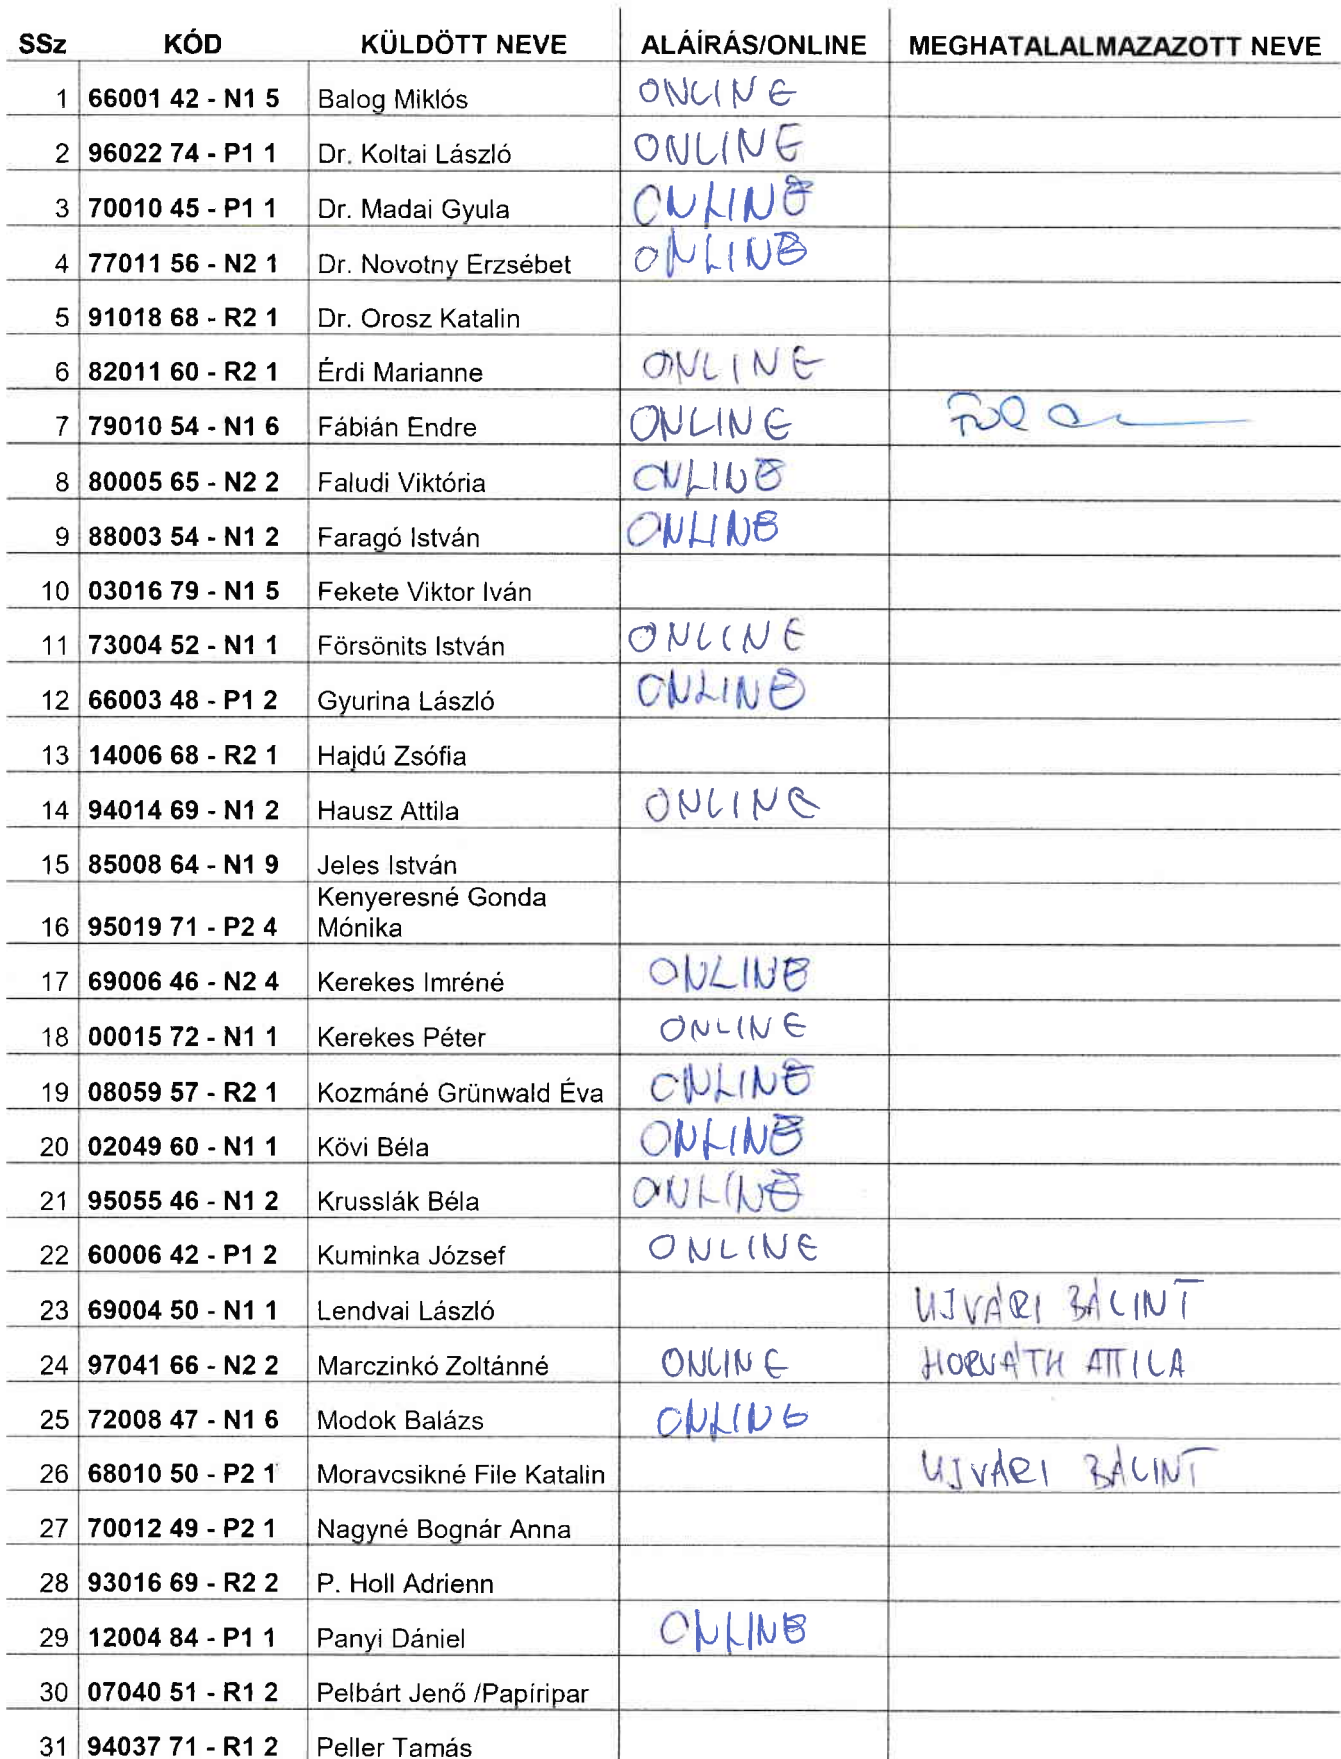 SSz KÓD KÜLDÖTT NEVE ALÁÍRÁS/ONLINE MEGHATALALMAZAZOTT NEVE
1 66001 42 - N1 5 Balog Miklós ONLINE
2 96022 74 - P1 1 Dr. Koltai László ONLINE
3 70010 45 - P1 1 Dr. Madai Gyula ONLINE
4 77011 56 - N2 1 Dr. Novotny Erzsébet ONLINE
5 91018 68 - R2 1 Dr. Orosz Katalin
6 82011 60 - R2 1 Érdi Marianne ONLINE
7 79010 54 - N1 6 Fábián Endre ONLINE
8 80005 65 - N2 2 Faludi Viktória ONLINE
9 88003 54 - N1 2 Faragó István ONLINE
10 03016 79 - N1 5 Fekete Viktor Iván
11 73004 52 - N1 1 Försönits István ONLINE
12 66003 48 - P1 2 Gyurina László ONLINE
13 14006 68 - R2 1 Hajdú Zsófia
14 94014 69 - N1 2 Hausz Attila ONLINE
15 85008 64 - N1 9 Jeles István
Kenyeresné Gonda
16 95019 71 - P2 4 Mónika
17 69006 46 - N2 4 Kerekes Imréné ONLINE
18 00015 72 - N1 1 Kerekes Péter ONLINE
19 08059 57 - R2 1 Kozmáné Grünwald Éva ONLINE
20 02049 60 - N1 1 Kövi Béla ONLINE
21 95055 46 - N1 2 Krusslák Béla ONLINE
22 60006 42 - P1 2 Kuminka József ONLINE
23 69004 50 - N1 1 Lendvai László UJVÁRI BÁLINT
24 97041 66 - N2 2 Marczinkó Zoltánné ONLINE HORVÁTH ATTILA
25 72008 47 - N1 6 Modok Balázs ONLINE
26 68010 50 - P2 1 Moravcsikné File Katalin UJVÁRI BÁLINT
27 70012 49 - P2 1 Nagyné Bognár Anna
28 93016 69 - R2 2 P. Holl Adrienn
29 12004 84 - P1 1 Panyi Dániel ONLINE
30 07040 51 - R1 2 Pelbárt Jenő /Papíripar
31 94037 71 - R1 2 Peller Tamás